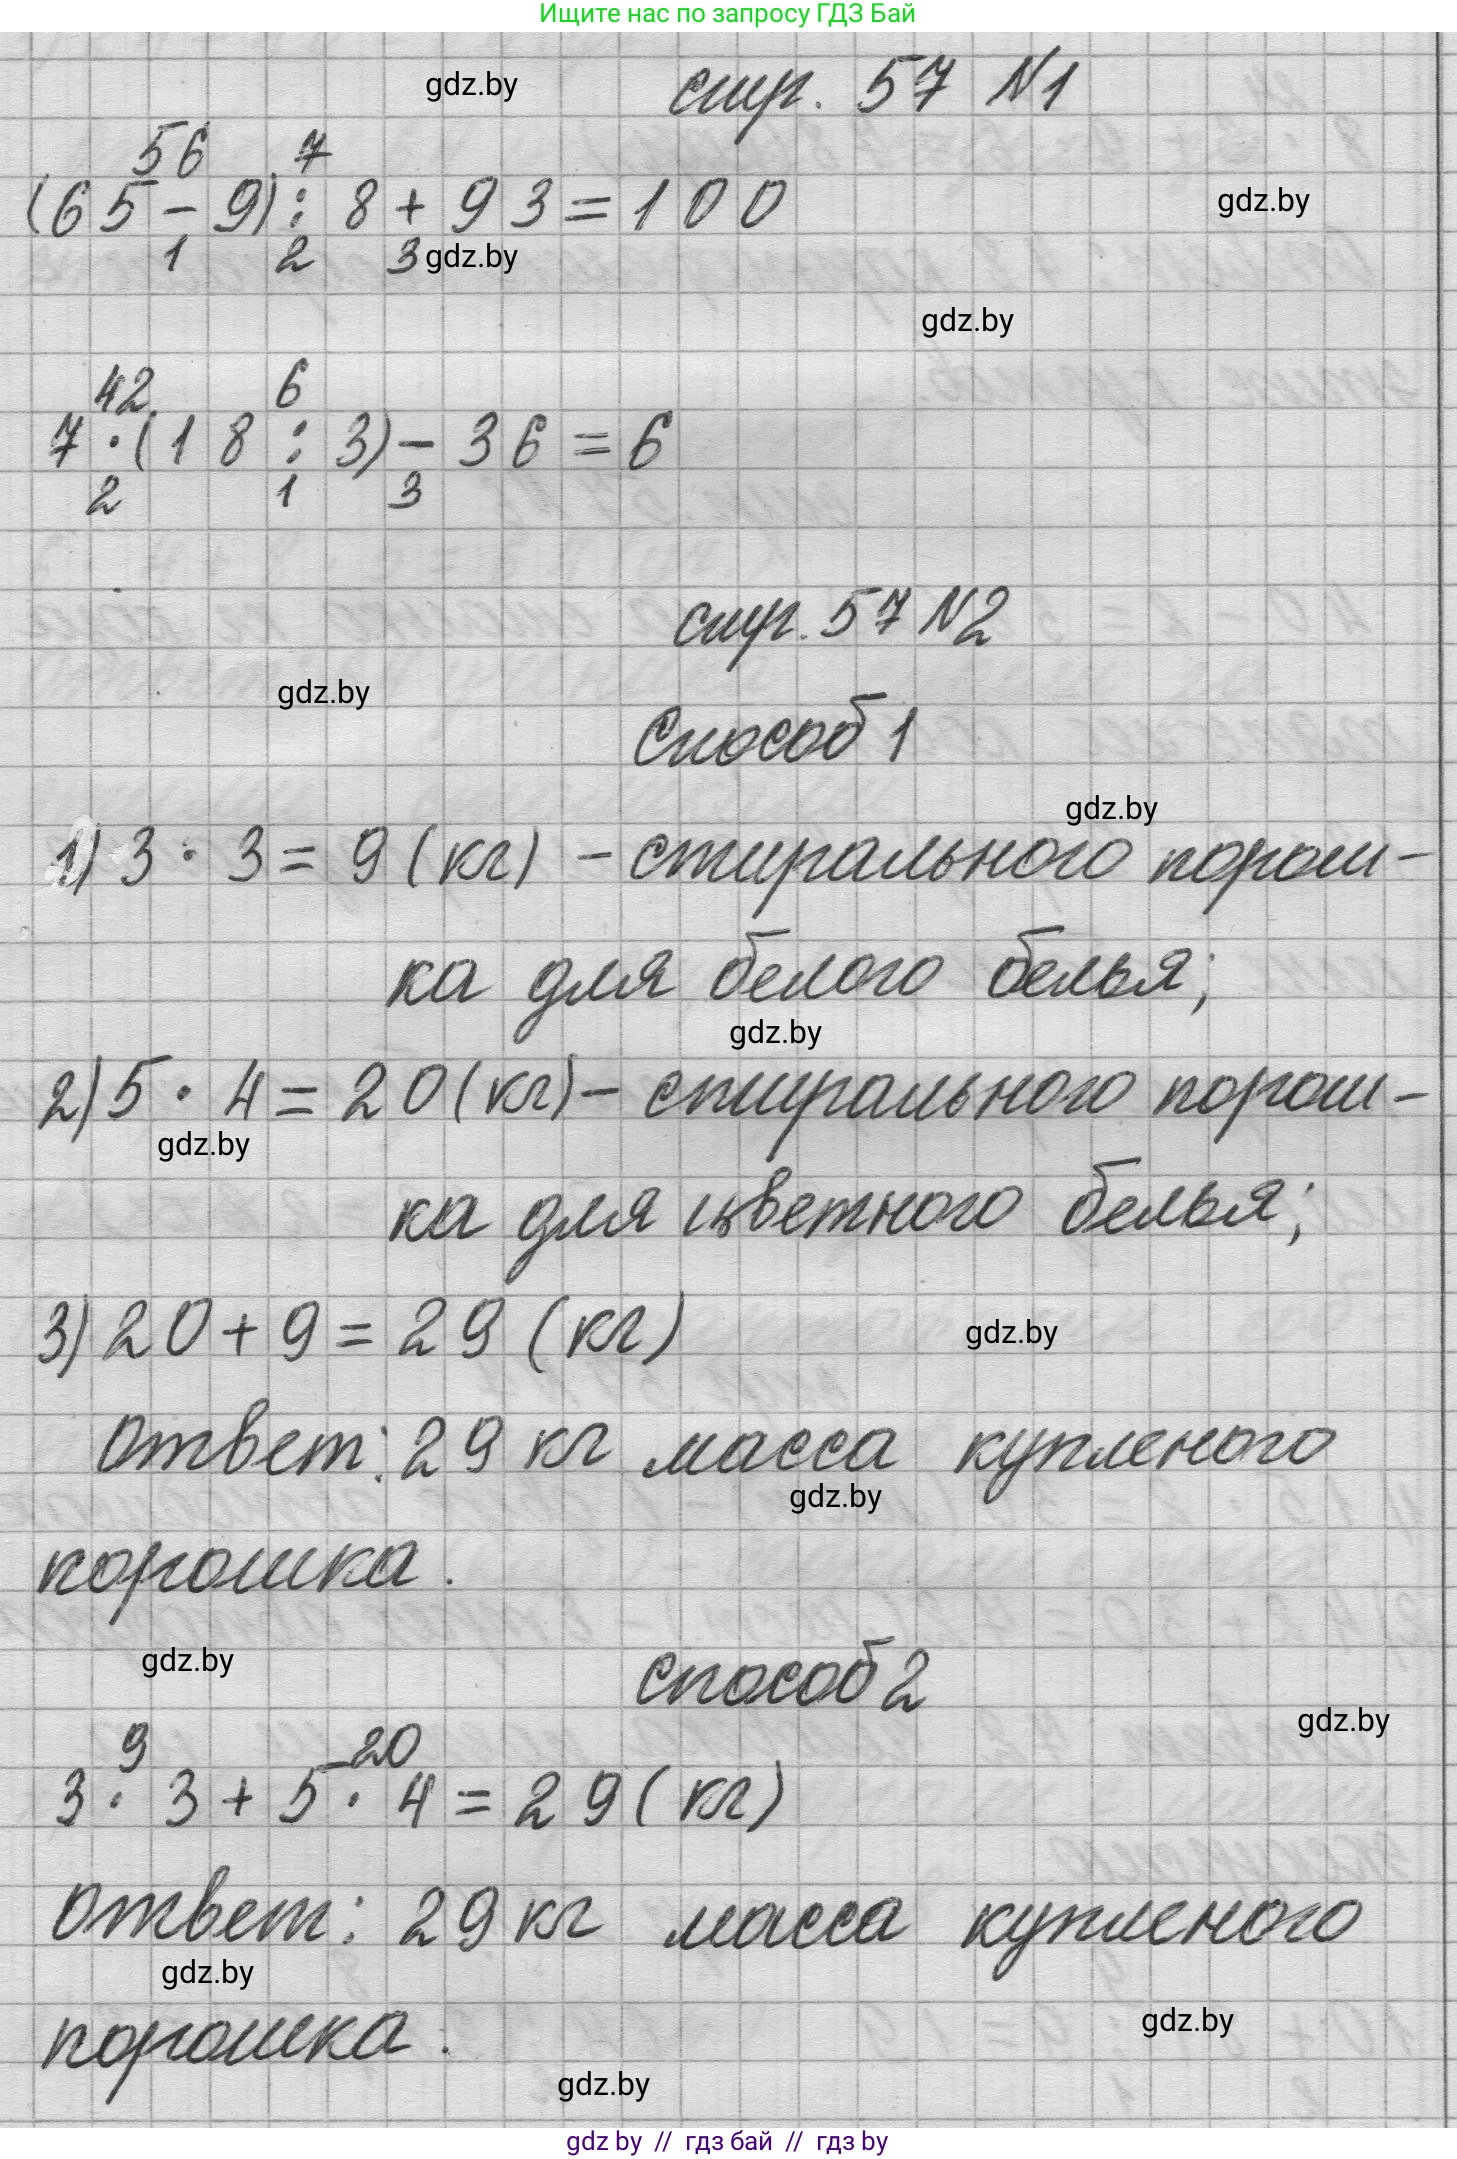 Ищите нас по запросу ГДЗ Бай
gdz.by
стр. 57 №1
56 7
(65 - 9) : 8 + 93 = 100
gdz.by
1 2 3
gdz.by
gdz.by
42 6
7 · (18 : 3) - 36 = 6
2 1 3
стр. 57 №2
gdz.by
Способ 1
gdz.by
1) 3 · 3 = 9 (кг) - стирального порош-
ка для белого белья;
gdz.by
2) 5 · 4 = 20 (кг) - стирального порош-
gdz.by
ка для цветного белья;
3) 20 + 9 = 29 (кг)
gdz.by
Ответ: 29 кг масса купленого
gdz.by
порошка.
gdz.by
способ 2
gdz.by
9 20
3 · 3 + 5 · 4 = 29 (кг)
Ответ: 29 кг масса купленого
gdz.by
порошка.
gdz.by
gdz.by
gdz by // гдз бай // гдз by